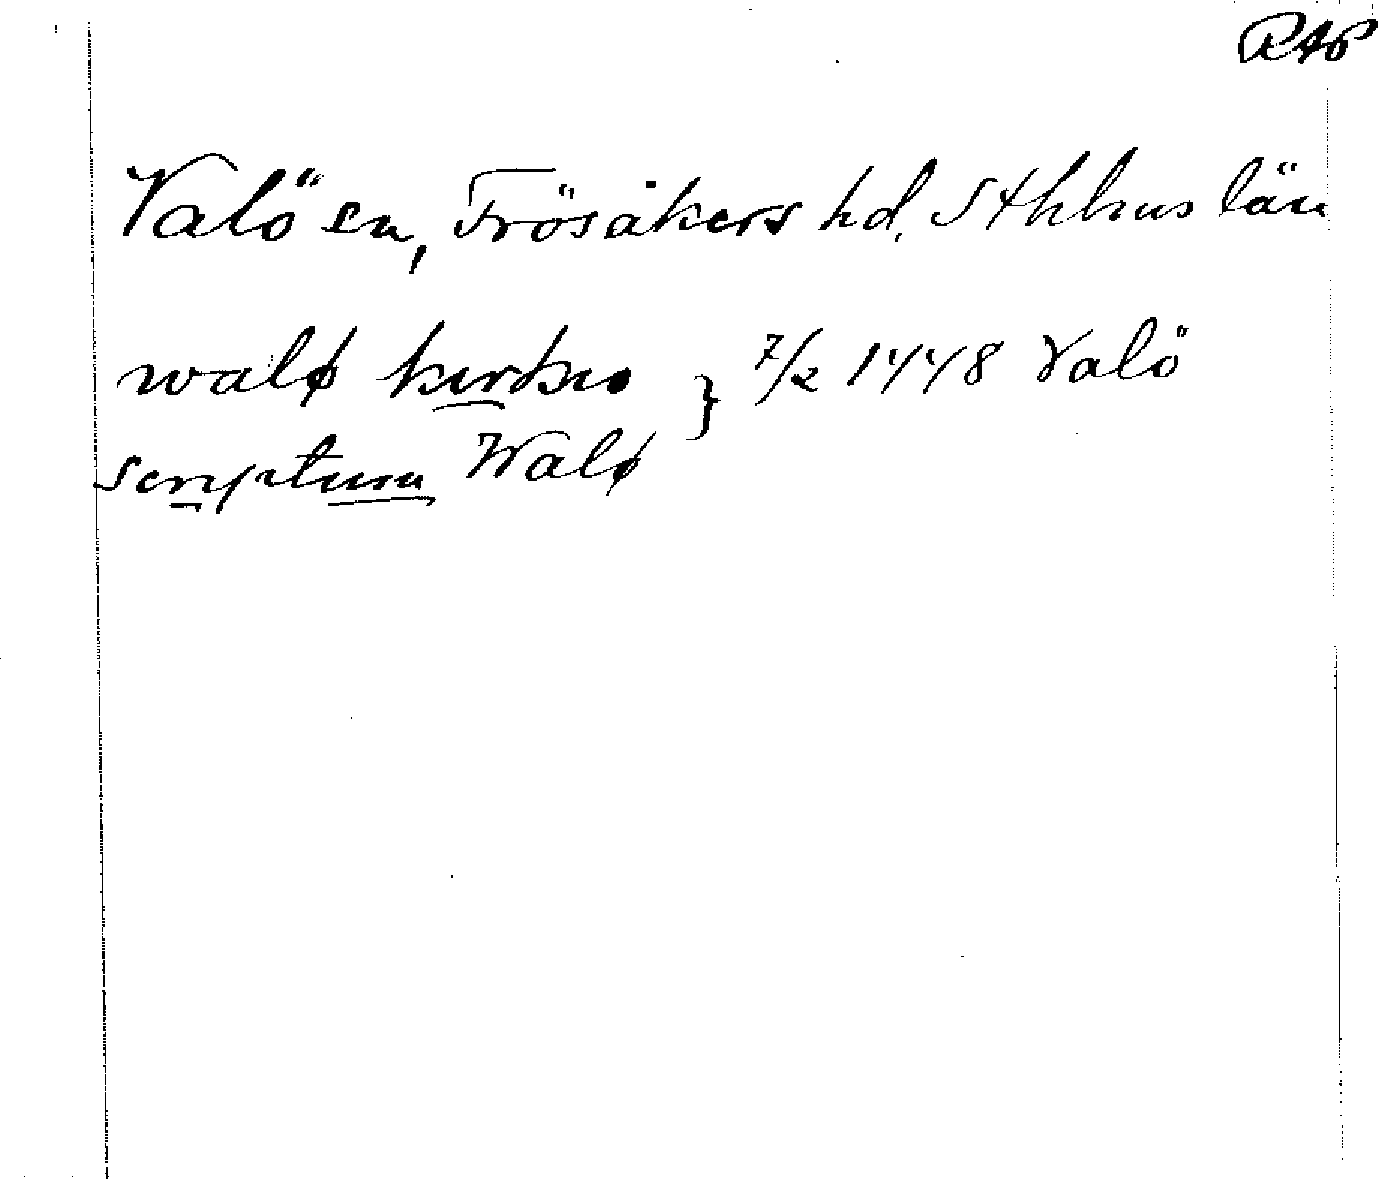 RAP
Valö sn, Frösåkers hd, Sthlms län
walø kirkio } 7/2 1448 Valö
scriptum Walø